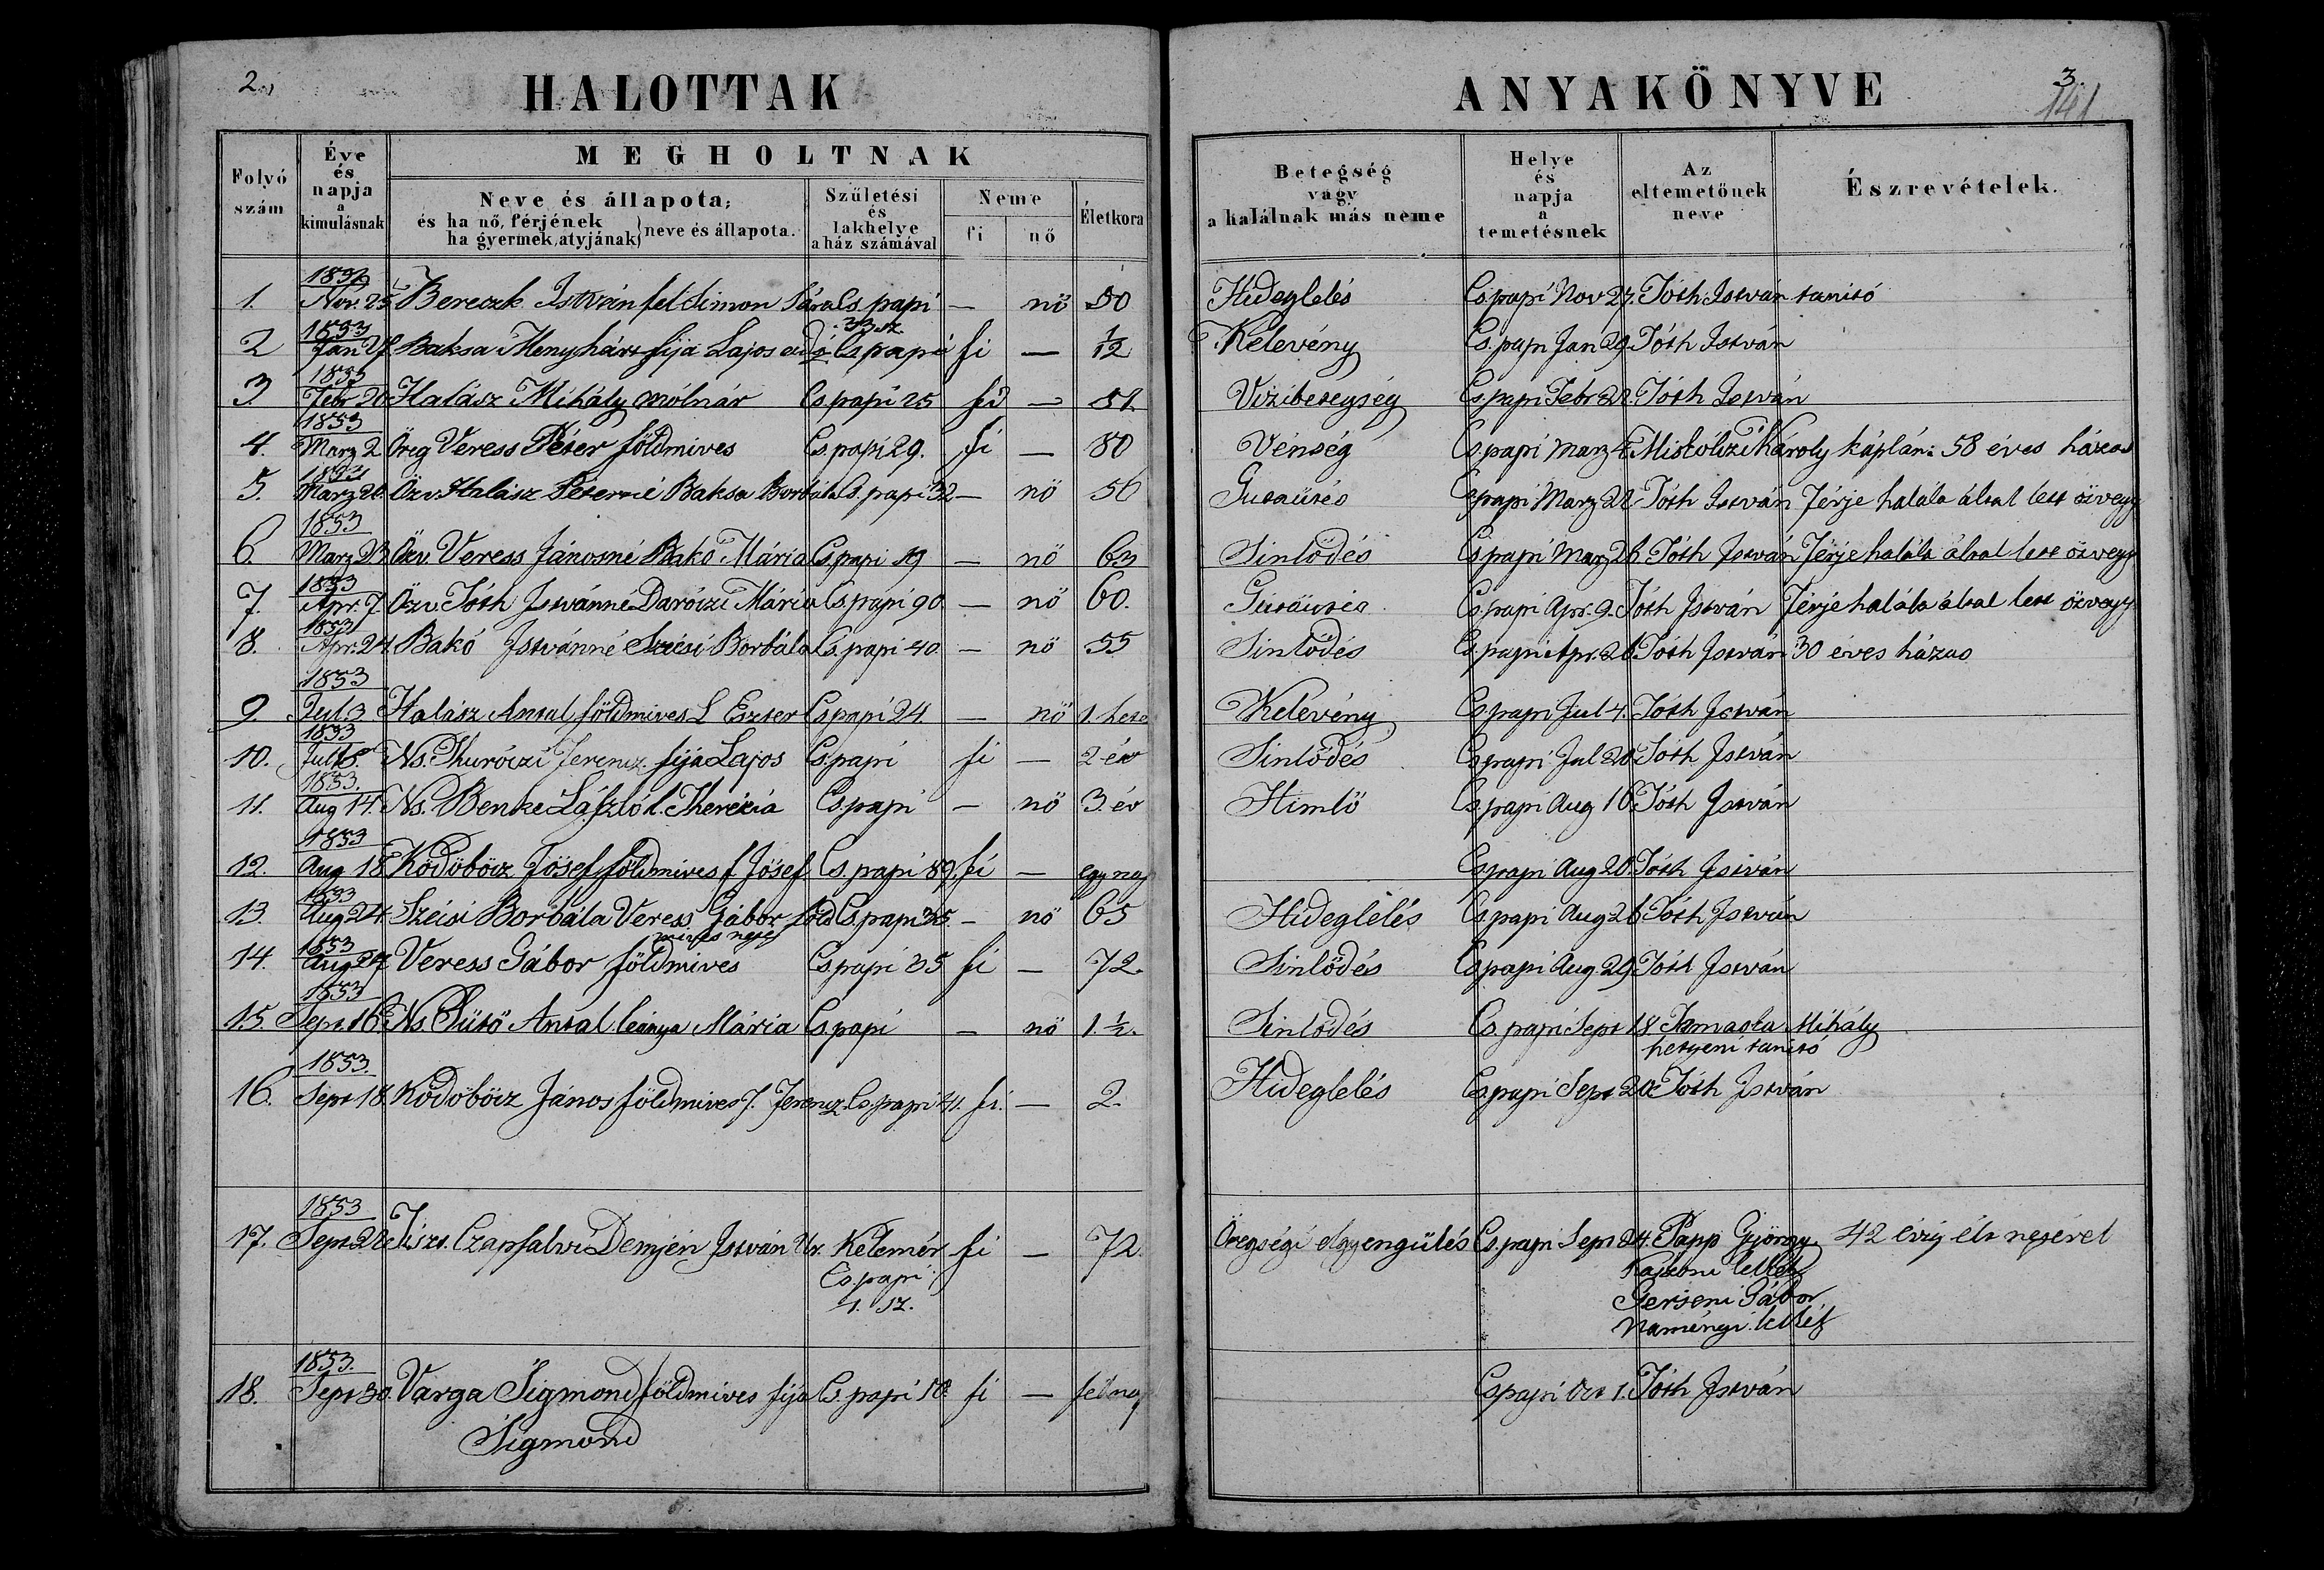 2.,
HALOTTAK
ANYAKÖNYVE
3.
141
Folyó szám
Éve és napja a kimulásnak
MEGHOLTNAK
Neve és állapota; és ha nő, férjének ha gyermek, atyjának} neve és állapota.
Születési és lakhelye a ház számával
Neme
fi
nő
Életkora
Betegség vagy a halálnak más neme
Helye és napja a temetésnek
Az eltemetőnek neve
Észrevételek.
1. Nov. 25 Bereczk István fel Simon Sára Cs. papi — nö 50 Hideglelés Cs. papi Nov 27. Tóth István tanitó
2 1853 Jan 27. Baksa Menyhárt fija Lajos Cs papi 33 sz. fi — ½ Kelevény Cs. papi Jan 29. Tóth István
3. 1853 Febr 20 Halász Mihály mólnár Cs papi 25 fi — 51. Vizibetegség Cs papi Febr 22. Tóth István
4. 1853 Marz 2 Öreg Veress Péter földmives Cs. papi 29. fi — 80 Vénség Cs. papi Marz 4. Miskólczi Károly káplán: 58 éves házas
5. 1853 Marz 20. Özv. Halász Péterné Baksa Borbála Cs. papi 32 — nö 56 Gutaütés Cs papi Marz 22 Tóth István Férje halála által lett özvegy
6. 1853 Marz 23 Özv. Veress Jánosné Bakó Mária Cs papi 19 — nö 63 Sinlődés Cs papi Marz 26. Tóth István Férje halála által lett özvegy
7. 1853 Apr. 7 Özv. Tóth Istvánné Daróczi Mária Cs. papi 90 — nö 60. Gutaütés Cs. papi Apr. 9. Tóth István Férje halála által lett özvegy
8. 1853 Apr. 24. Bakó Istvánné Szécsi Borbála Cs. papi 40 — nö 55 Sinlődés Cs papi Apr. 26 Tóth István 30 éves házas
9. 1853 Jul. 3 Halász Antal földmives L Eszter Cs papi 24. — nö 1. hete Kelevény Cs. papi Jul 4. Tóth István
10. 1853 Jul 18. Ns. Thuróczi Ferencz fija Lajos Cs. papi fi — 2 év Sinlődés Cs papi Jul 20 Tóth István
11. 1853. Aug 14. Ns. Benke László l. Therézia Cs. papi — nö 3. év Himlö Cs. papi Aug 16. Tóth István
12. 1853 Aug 18 Ködöböcz Jósef földmives f Jósef. Cs. papi 89. fi — egy nap Cs papi Aug 20. Tóth István
13. 1853 Aug 24. Szécsi Borbála Veress Gábor föld Cs. papi 35. — nö 65 Hideglelés Cs. papi Aug 26 Tóth István
mives neje
14. 1853 Aug 27 Veress Gábor földmives Cs. papi 35 fi — 72. Sinlődés Cs papi Aug. 29 Tóth István
15. 1853 Sept. 16. Ns. Sütö Antal leánya Mária Cs. papi — nö 1. ½. Sinlődés Cs. papi Sept 18 Tamaska Mihály
hetyeni tanitó
16. 1853. Sept 18. Ködöböcz János földmives f. Ferencz Cs. papi 41. fi. — 2. Hideglelés Cs. papi Sept 20. Tóth István
17. 1853 Sept 22. Tiszt. Czapfalvi Demjén István Ur. Kelemér fi — 72. Öregségi elgyengülés Cs. papi Sept 24. Papp György 42 évig élt nejével
Cs. papi
1. sz.
Kaszoni lelkész
Gerseni Gábor
Naményi lelkész
18. 1853. Sept 30. Varga Sigmond földmives fija Cs. papi 10. fi — fél nap Cs papi Oct 1. Tóth István
Sigmond